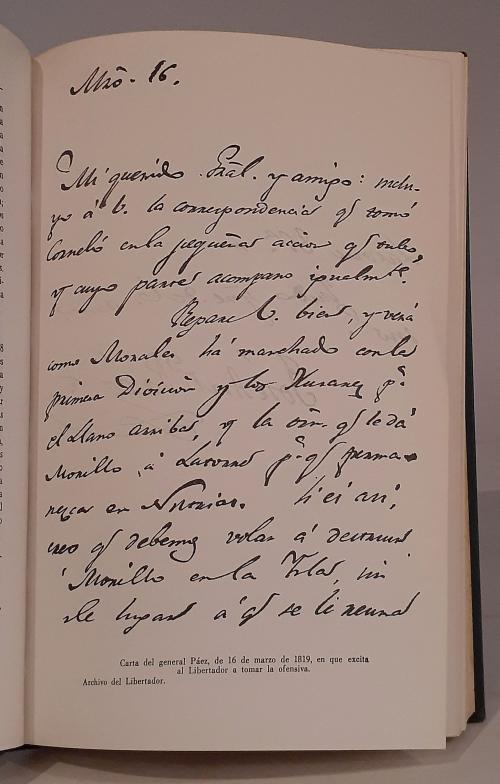 Mzō. 16.
Mi querido Gral. y amigo: inclu-
yo á V. la correspondencia qe tomó
Cornelio en la pequeña accion qe tubo,
y cuyo parte acompaño igualmte.
Repare V. bien, y verá
como Morales há marchado con la
primera Division y los Husares pa.
el Llano arriba, y la orn. qe le dá
Morillo á Latorre pa. qe perma-
nezca en Nutrias. Si es asi,
creo qe debemos volar á destruir
á Morillo en la Isla, sin
de lugar á qe se le reuna
Carta del general Páez, de 16 de marzo de 1819, en que excita
al Libertador a tomar la ofensiva.
Archivo del Libertador.